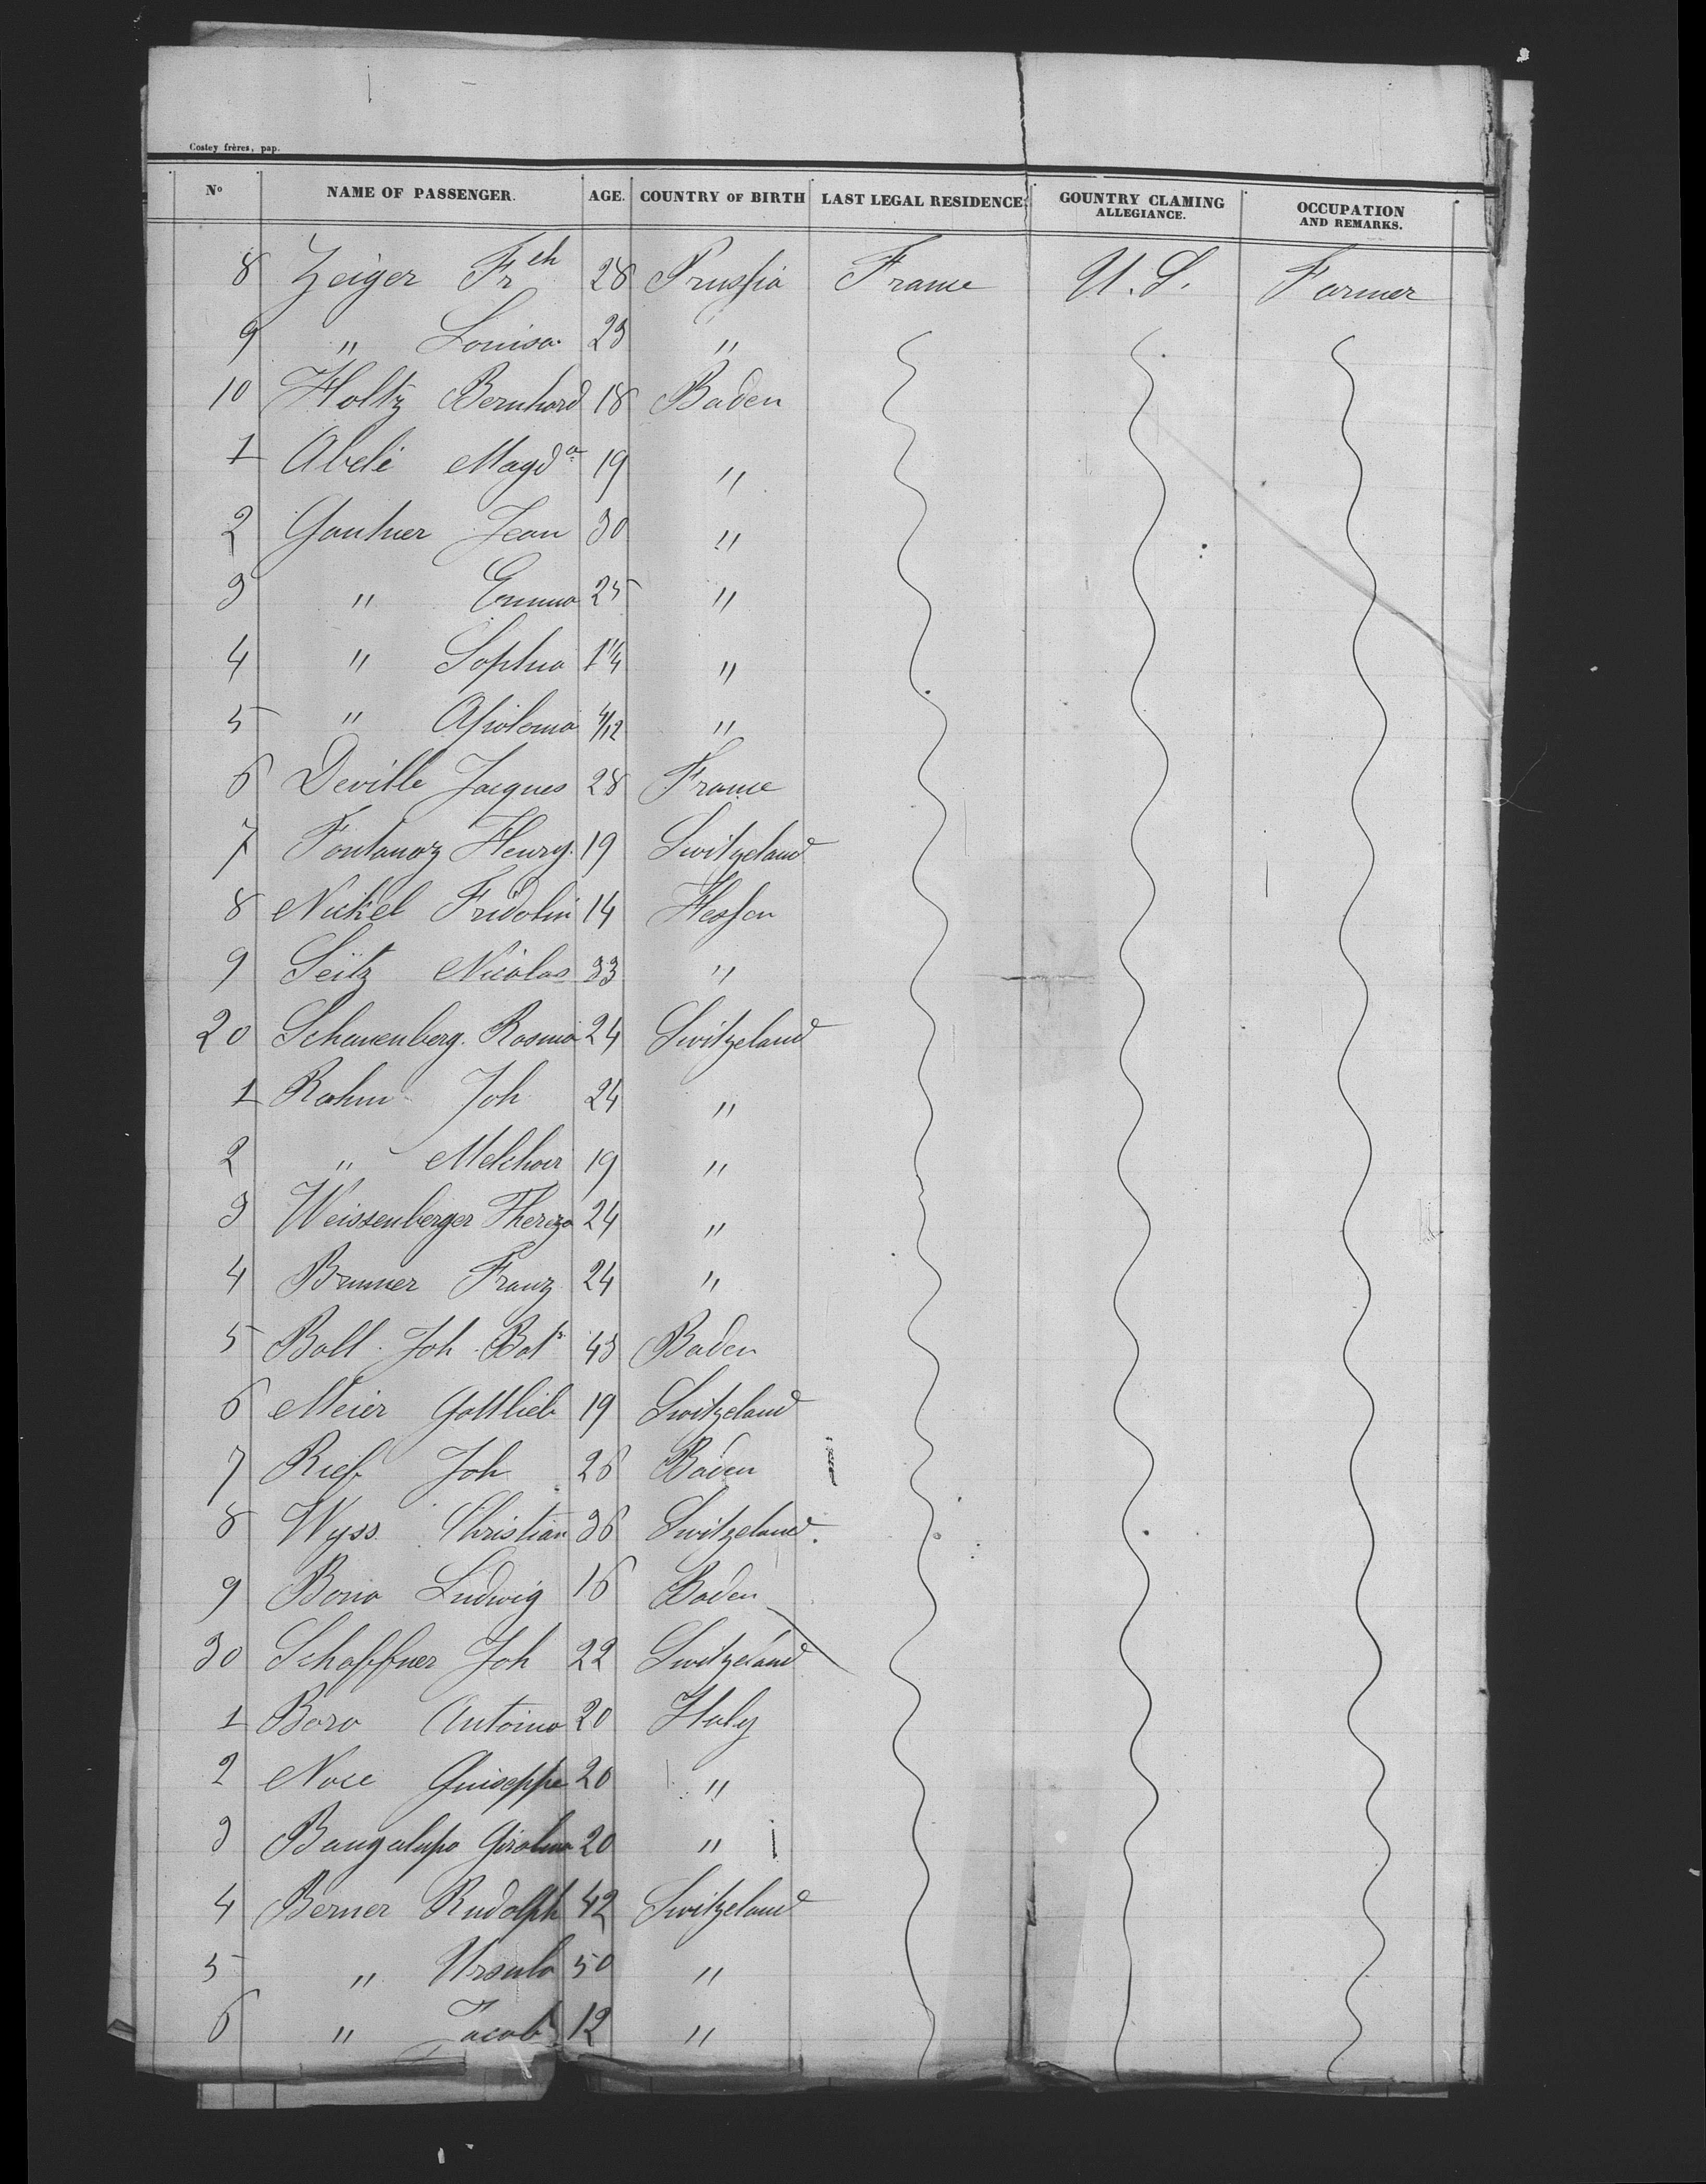 Costey frères, pap.
No NAME OF PASSENGER. AGE. COUNTRY OF BIRTH LAST LEGAL RESIDENCE. GOUNTRY CLAMING ALLEGIANCE. OCCUPATION AND REMARKS.
8 Zeiger Frch 28 Prussia France U.S. Farmer
9 " Louisa 23 "
10 Holtz Bernhard 18 Baden
1 Abele Magda 19 "
2 Gantner Jean 30 "
3 " Emma 25 "
4 " Sophia 1 1/4 "
5 " Apolonia 4/12 "
6 Deville Jacques 28 France
7 Fontanaz Henry 19 Switzeland
8 Nickel Fridolin 14 Hessen
9 Seitz Nicolas 33 "
20 Schauenberg. Rosina 24 Switzeland
1 Rahm Joh 24 "
2 " Melchoir 19 "
3 Weissenberger Thereza 24 "
4 Brunner Franz 24 "
5 Boll Joh Bate 43 Baden
6 Meier Gottlieb 19 Switzeland
7 Rief Joh 26 Baden
8 Wyss Christian 36 Switzeland.
9 Ludwig 16 Baden
30 Schaffner Joh 22 Switzeland
1 Boro Antoino 20 Italy
2 Noce Guiseppe 20 "
3 Bangalupo 20 "
4 Berner Rudolph 42 Switzeland
5 " Ursula 50 "
6 " Jacob 12 "